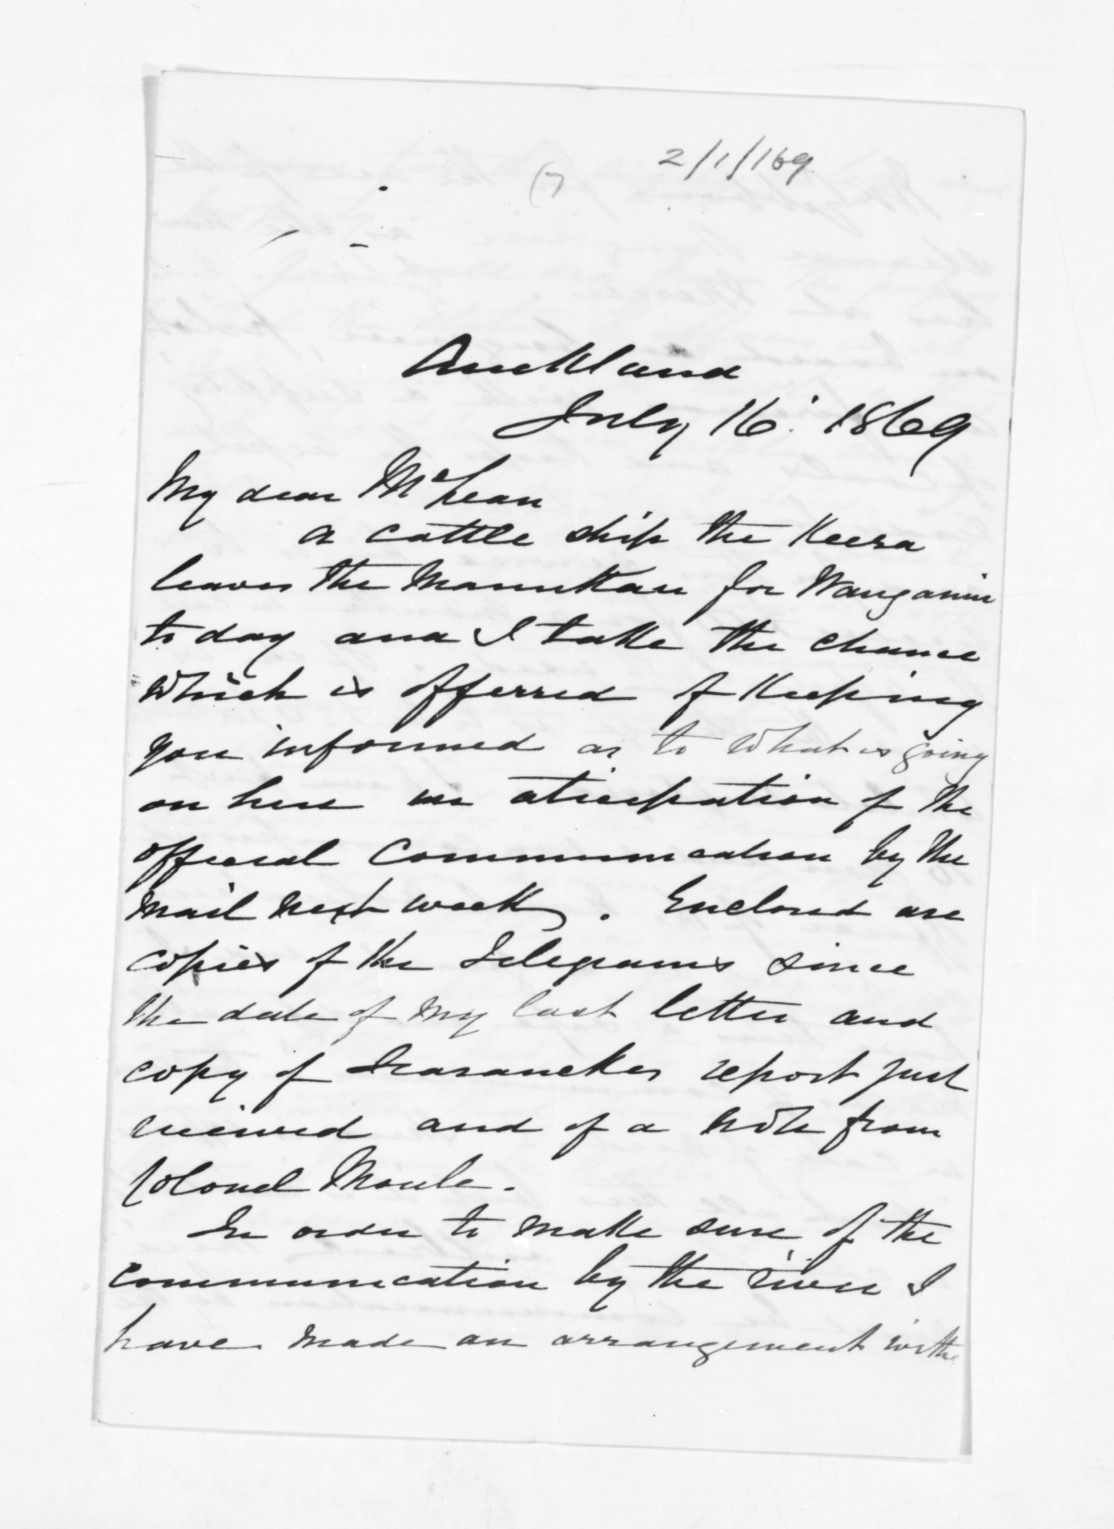 2/1/169
(7
Auckland
July 16: 1869
My dear McLean
A cattle ship the Keera
leaves the Manukau for Wanganui
to day and I take the chance
which is offerred of keeping
you informed as to what is going
on here in aticipation of the
official communication by the
mail next week. Enclosed are
copies of the Telegrams since
the date of my last letter and
copy of report just
received and of a note from
Colonel Moule.
In order to make sure of the
communication by the river I
have made an arrangement with